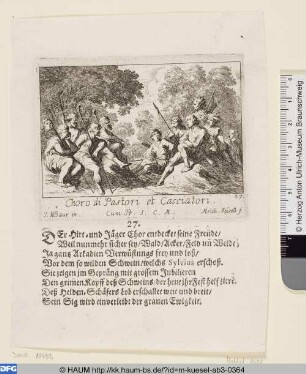 Choro di Pastori et Cacciatori.
27.
Cum Pr. S. C. M.
27.
DEr Hirt- und Jäger Chor entdeckt seine Freude/
Weil nunmehr sicher sey/ Wald/ Acker/ Feld und Weide;
Ja gantz Arkadien Verwüstungs frey und loß/
Vor dem so wilden Schwein/ welchs Sylvius erschoß.
Sie zeigen im Gepräng mit grossem Jubiliren
Den grimen Kopff deß Schweins/ der
Deß Helden/ Schäfers Lob erschallet weit und breit/
Sein Sig wird einverleibt der grauen Ewigkeit.
© Herzog Anton Ulrich-Museum Braunschweig
DFG
© HAUM http://kk.haum-bs.de/?id=m-kuesel-ab3-0364